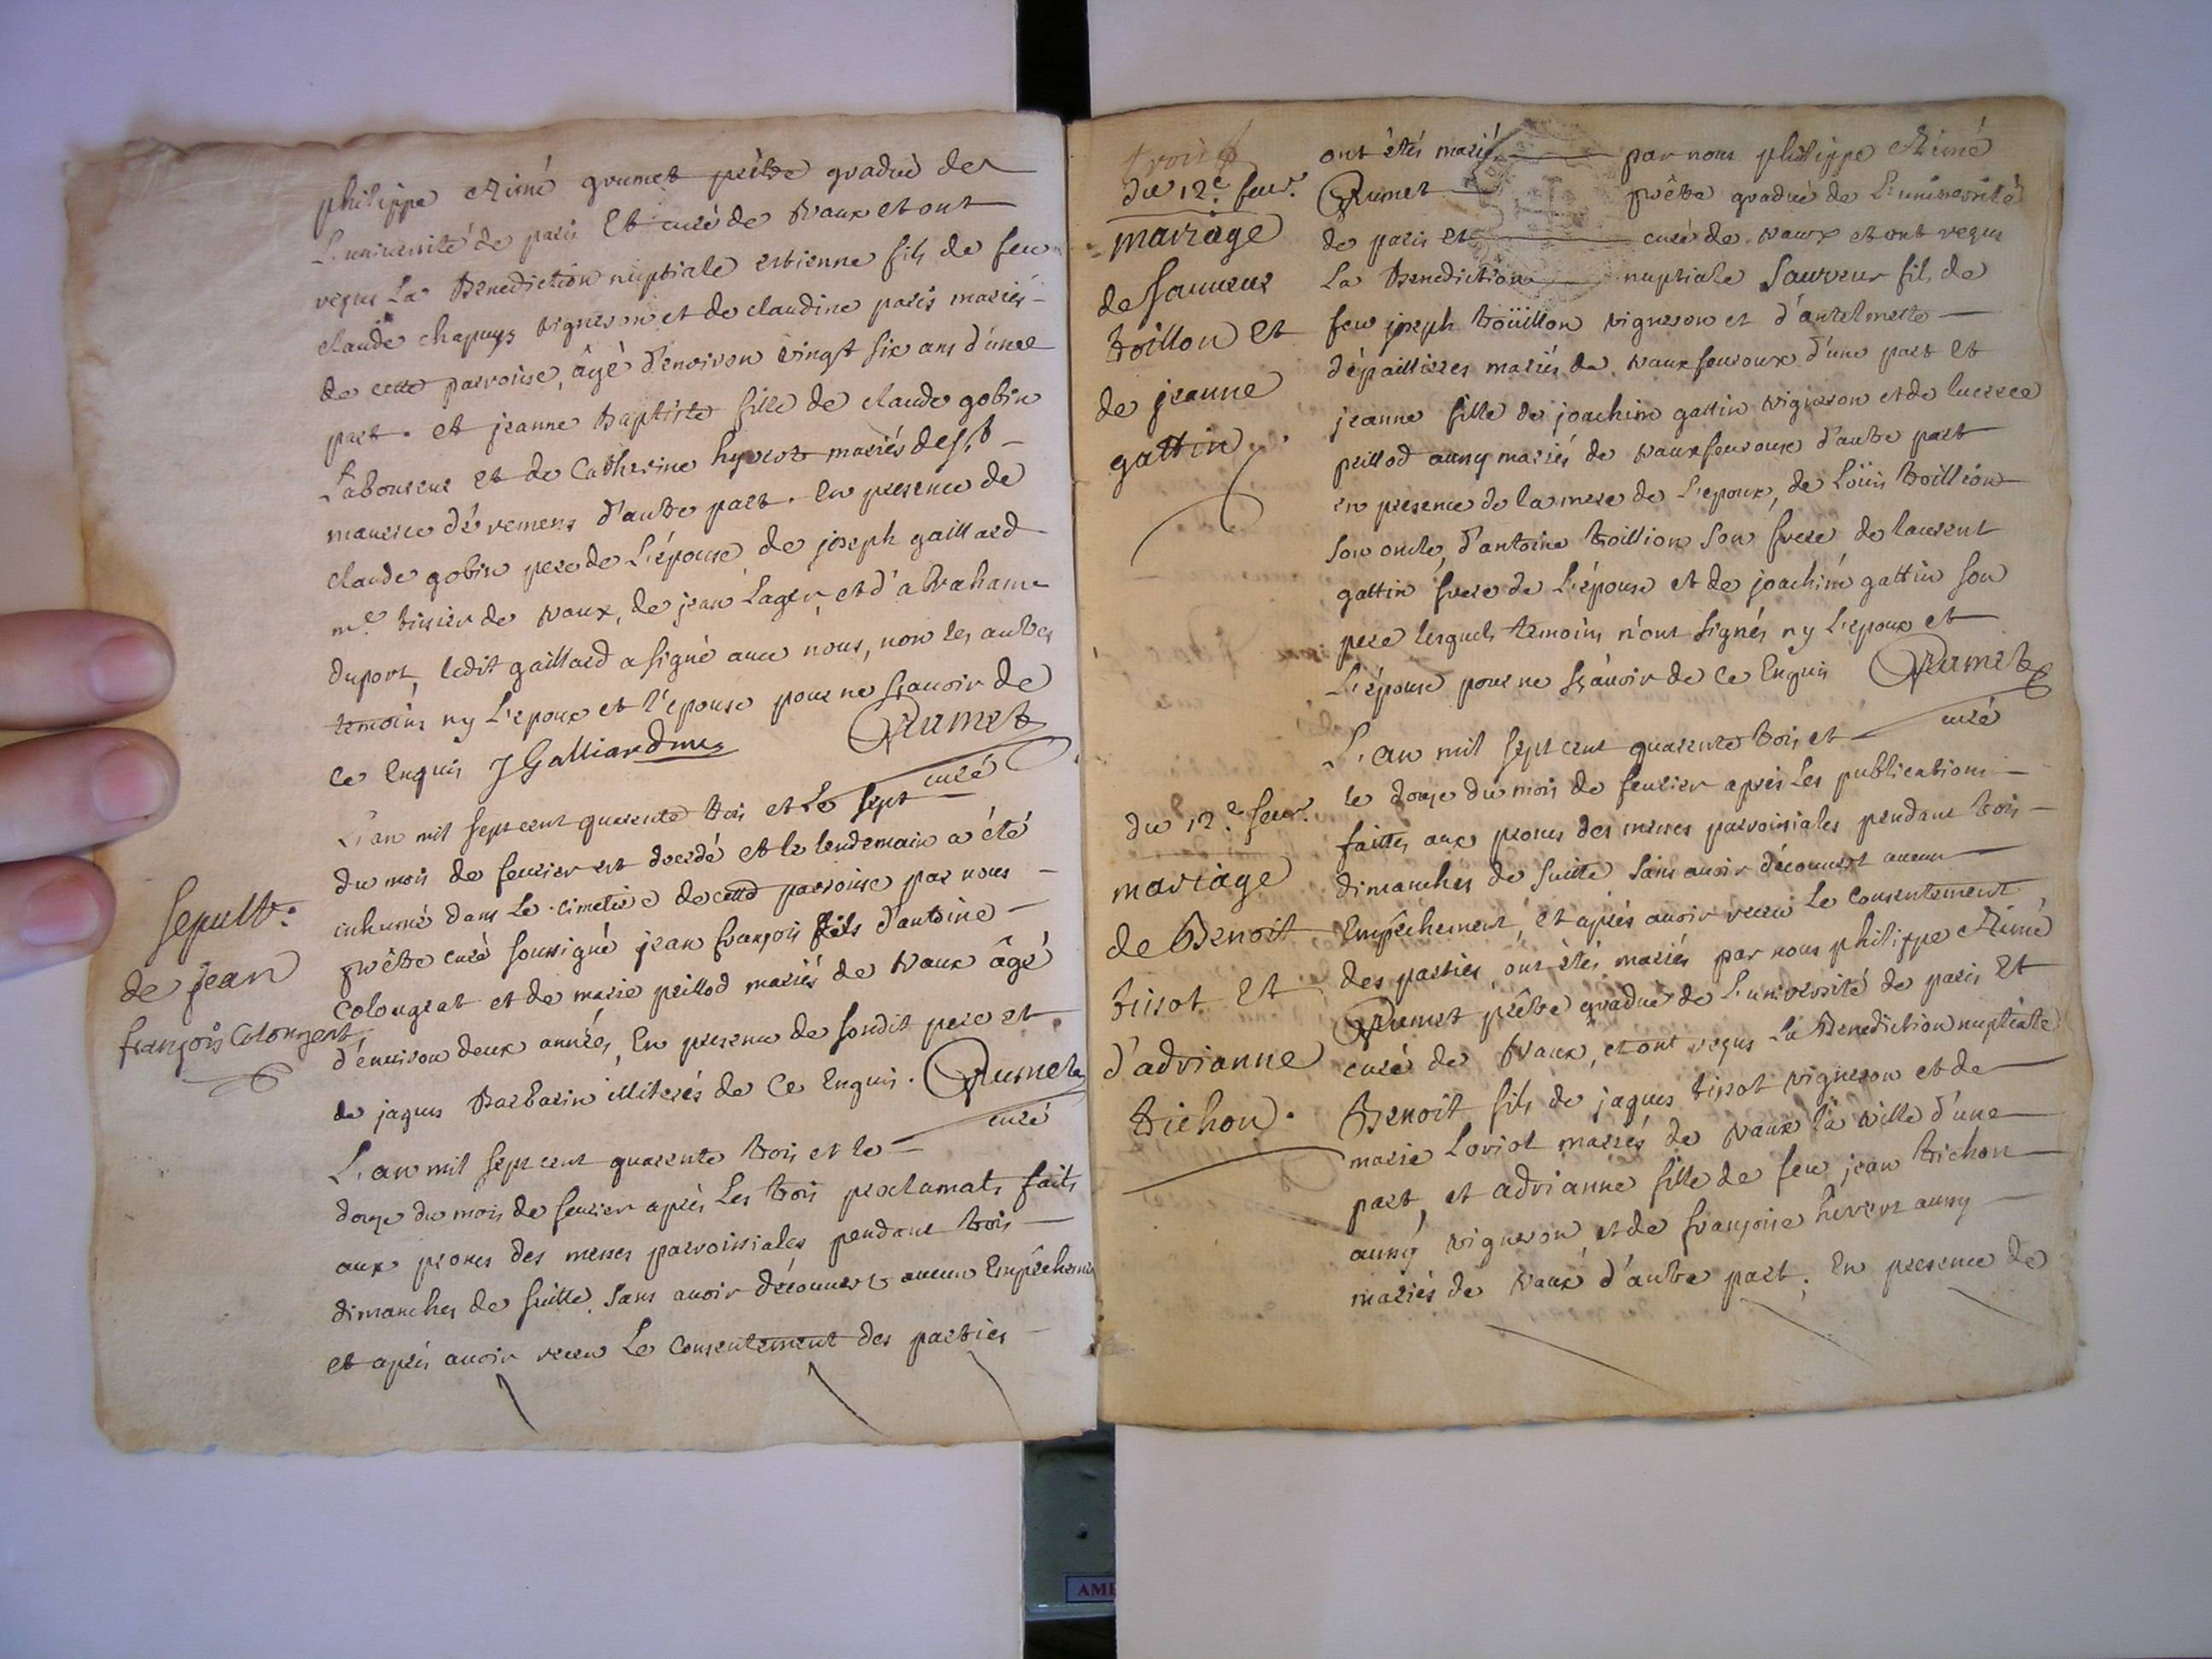 philippe Aimé grumet prêtre gradué de
L'université de paris Et curé de vaux et ont
reçus La Benediction nuptiale estienne fils de feu
claude chapuys vigneron et de claudine paris mariés
de cette parroisse, âgé d'environ vingt six ans d'une
part. et jeanne Baptiste fille de claude gobin
Laboureur et de Catherine hyvert mariés de St
maurice de remens d'autre part. En presence de
claude gobin pere de L'épouse, de joseph gaillard
me. tisier de vaux, de jean Lager, et d'abraham
duport, ledit gaillard a signé avec nous, non les autres
temoins ny L'epoux et l'epouse pour ne sçavoir de
ce Enquis J Galliard Grumet
curé
L'an mil sept cent quarente trois et Le sept
du mois de fevrier est decedé et le lendemain a été
inhumé dans Le cimetiere de cette parroisse par nous
prêtre curé soussigné jean françois fils d'antoine
Colongeat et de marie peillod mariés de vaux âgé
d'environ deux années, En presence de sondit pere et
de jaques Barbarin illiterés de Ce Enquis. Grumet
curé
Sepult:
de jean
françois Colongeat
L'an mil sept cent quarente trois et le
douze du mois de fevrier après Les trois proclamats faits
aux prones des messes parroissiales pendant trois
dimanches de suitte, sans avoir découvert aucun Empêchem
et après avoir receu Le Consentement des parties
trois
du 12e. fevr.
mariage
de sauveur
troillon Et
de jeanne
gattin
ont étés mariés par nous philippe Aimé
Grumet prêtre gradué de L'université
de paris et curé de vaux et ont reçus
La Benediction nuptiale Sauveur fils de
feu joseph troüillon vigneron et d'antelmette
d'épaillieres mariés de vauxfevroux d'une part et
jeanne fille de joachim gattin vigneron et de lucrece
peillod aussy mariés de vauxfevroux d'autre part
en presence de la mere de L'epoux, de Loüis troillion
son oncle, d'antoine troillion son frere de laurent
gattin frere de L'épouse et de joachim gattin son
pere lesquels temoins n'ont signés ny L'epoux et
L'épouse pour ne sçavoir de Ce Enquis Grumet
curé
du 12.e fevr.
mariage
de Benoit
tissot Et
d'adrianne
trichon.
L'an mil sept cent quarente trois et
le douze du mois de fevrier après Les publications
faittes aux prones des messes parroissiales pendant trois
dimanches de suitte sans avoir découvert aucun
Empêchement, et après avoir receu Le Consentement
des parties ont étés mariés par nous philippe Aimé
Grumet prêtre gradué de L'université de paris Et
curé de Vaux, et ont reçus La Benediction nuptiale
Benoit fils de jaques tissot vigneron et de
marie Loriot mariés de vaux la ville d'une
part, et adrianne fille de feu jean trichon
aussy vigneron et de françoise hivert aussy
mariés de vaux d'autre part; En presence de
AME